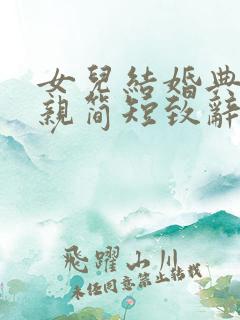 女兒結婚典
親簡短致辭
飛躍山川
未經同意禁止轉載